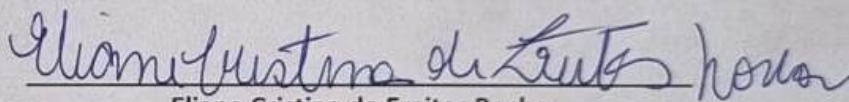 Eliane Cristina de Freitas
Eliane Cristina de Freitas